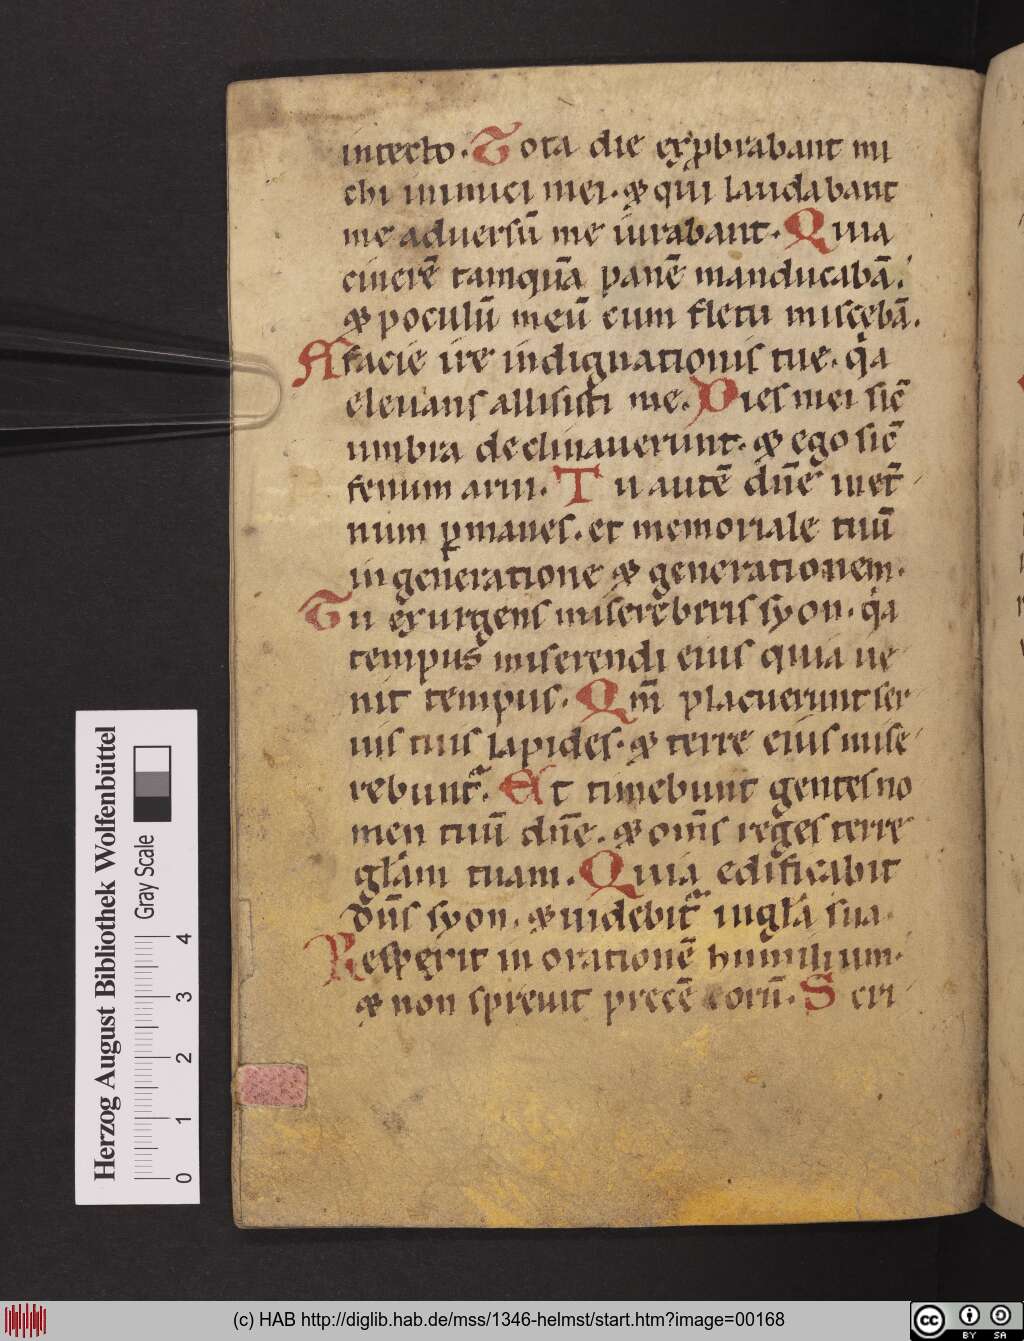 intecto. Tota die exꝓbrabant mi
chi inimici mei. & qui laudabant
me adversū me iurabant. Quia
cinerē tamquā panē manducabā.
& poculū meū cum fletu miscebā.
A facie ire indignationis tue. qͣa
elevans allisisti me. Dies mei sič
umbra declinaverunt. & ego sič
fenum arui. Tu autē dñe inet̄
num ꝑmanes. et memoriale tuū
in generatione & generationem.
Tu exurgens misereberis syon. qͣa
tempus miserendi eius quia ve
nit tempus. Qm̄ placuerunt ser
vis tuis lapides. & terre eius mise
rebunt᷑. Et timebunt gentes no
men tuū dñe. & om̄s reges terre
glām tuam. Quia edificabit
dn̄s syon. & videbit᷑ in gl̄a sua.
Respexit in orationē humilium.
& non sprevit precē eorū. Scri
Herzog August Bibliothek Wolfenbüttel
Gray Scale
0 1 2 3 4
(c) HAB http://diglib.hab.de/mss/1346-helmst/start.htm?image=00168
cc BY SA